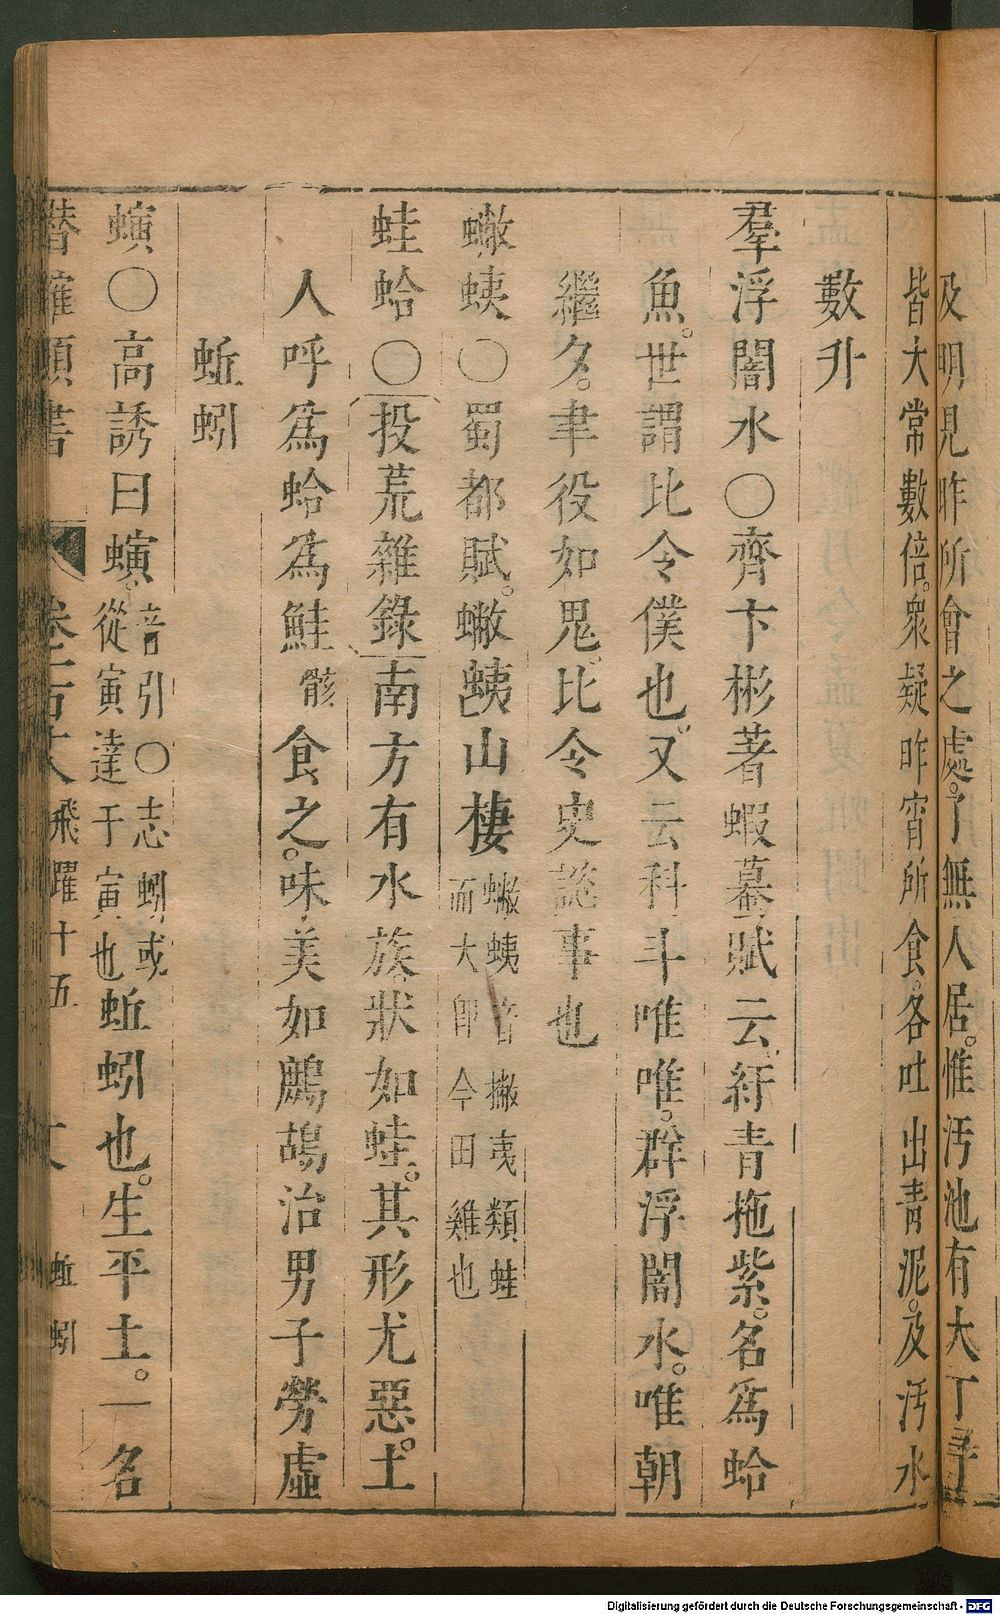 及明見昨所會之處。了無人居。惟汚池有大丁子
皆大常數倍。衆疑昨宵所食。各吐出青泥。及汚水
數升
羣浮闇水〇齊卞彬著蝦蟇賦云紆青拖紫。名爲蛤
魚。世謂比令僕也。又云科斗唯唯。群浮闇水。唯朝
繼夕。聿役如鬼。比令史諮事也
蟞蛦〇蜀都賦。蟞蛦山棲蟞蛦音撇夷類蛙
而大卽今田雞也
蛙蛤〇投荒雜錄南方有水族。狀如蛙。其形尤惡。土
人呼爲蛤爲鮭骸食之。味美如鷓鴣治男子勞虛
蚯蚓
螾〇高誘曰螾。音引〇志蚓或
從寅達于寅也蚯蚓也。生平土。一名
潛確類書 卷一百十八 飛躍十五 蚯蚓
Digitalisierung gefördert durch die Deutsche Forschungsgemeinschaft - DFG